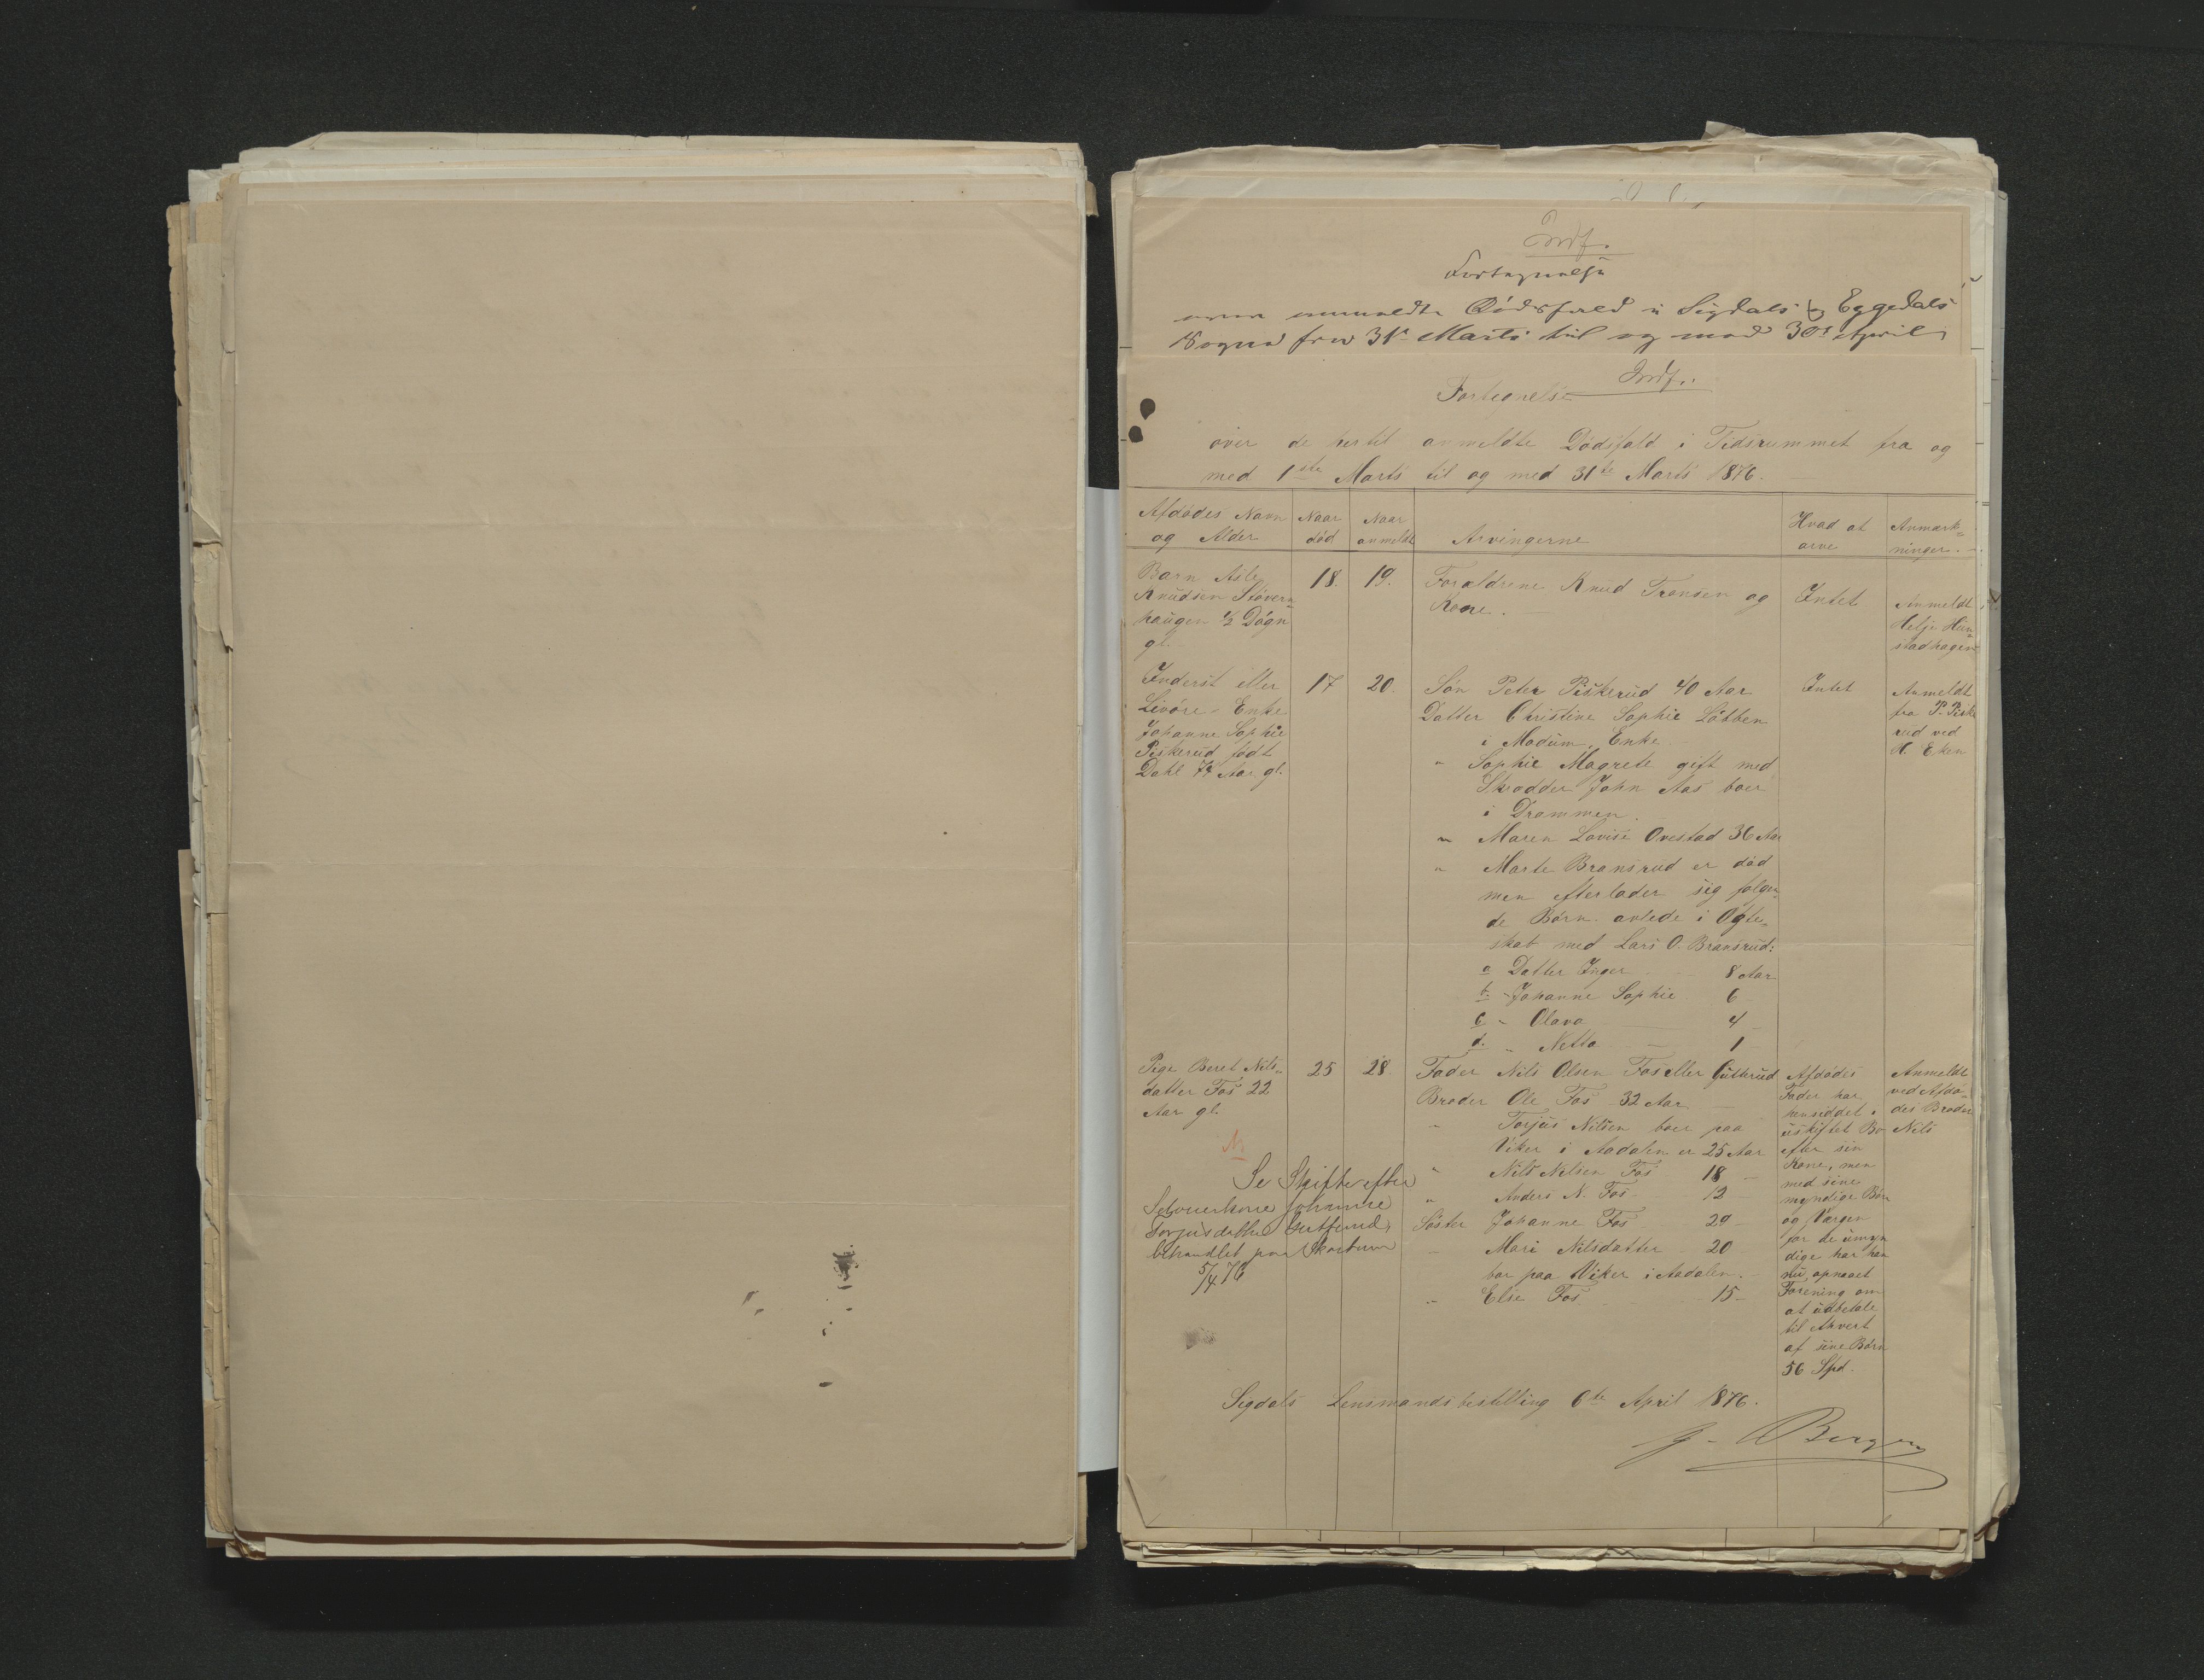 Indf.
Fortegnelse
over anmeldte Dødsfald i Sigdals og Eggedals
Sogne fra 31te Marts til og med 30te April
Indf.
Fortegnelse
over de hertil anmeldte Dødsfald i Tidsrummet fra og
med 1ste Marts til og med 31te Marts 1876.
Afdødes Navn og Alder
Naar død
Naar anmeldt
Arvingerne
Hvad at arve
Anmærk=
ninger.
Barn Asle
Knudsen Støvern=
haugen 1/2 Døgn
gl.
18.
19.
Forældrene Knud Transen og
Kone.
Intet
Anmeldt
Helje Hæn=
stadhagen
Inderst eller
Livøre-Enke
Johanne Sophie
Piskerud født
Dahl 74 Aar gl.
17
20.
Søn Peter Piskerud 40 Aar
Datter Christine Sophie Løbben
i Modum, Enke
" Sophie Magrete gift med
Skrædder John Aas boer
i Drammen.
" Maren Lovise Ovestad 36 Aar
" Marte Bransrud er død
men efterlader sig følgen=
de Børn avlede i Ægte=
skab med Lars O. Bransrud:
a Datter Inger 8 Aar
b. - Johanne Sophie 6
c - Olava 4
d. " Netta 1
Intet
Anmeldt
fra P. Piske
rud ved
H. Eken
Pige Beret Nils=
datter Fos 22
Aar gl.
25
28
Fader Nils Olsen Fos eller Gutterud
Broder Ole Fos 32 Aar
" Torjus Nilsen boer paa
Viker i Aadalen er 25 Aar
" Nils Nilsen Fos 18
" Anders N. Fos 12
Søster Johanne Fos 29
" Mari Nilsdatter 20
bor paa Viker i Aadalen.
" Elsie Fos 15
Afdødes
Fader har
hensiddet i
uskiftet Bo
efter sin
Kone, men
med sine
myndige Børn
og Værgen
for de umyn
dige har han
nu opnaaet
Forening om
at udbetale
til Ahvert
af sine Børn
56 Spd.
Anmeldt
ved Afdø=
des Broder
Nils
N.
Se Skifte efter
Selveierkone Johanne
Torjusdatter Gutterud,
behandlet paa Skartum
5/4 76
Sigdals Lensmandsbestilling 6te April 1876.
J. Bergan